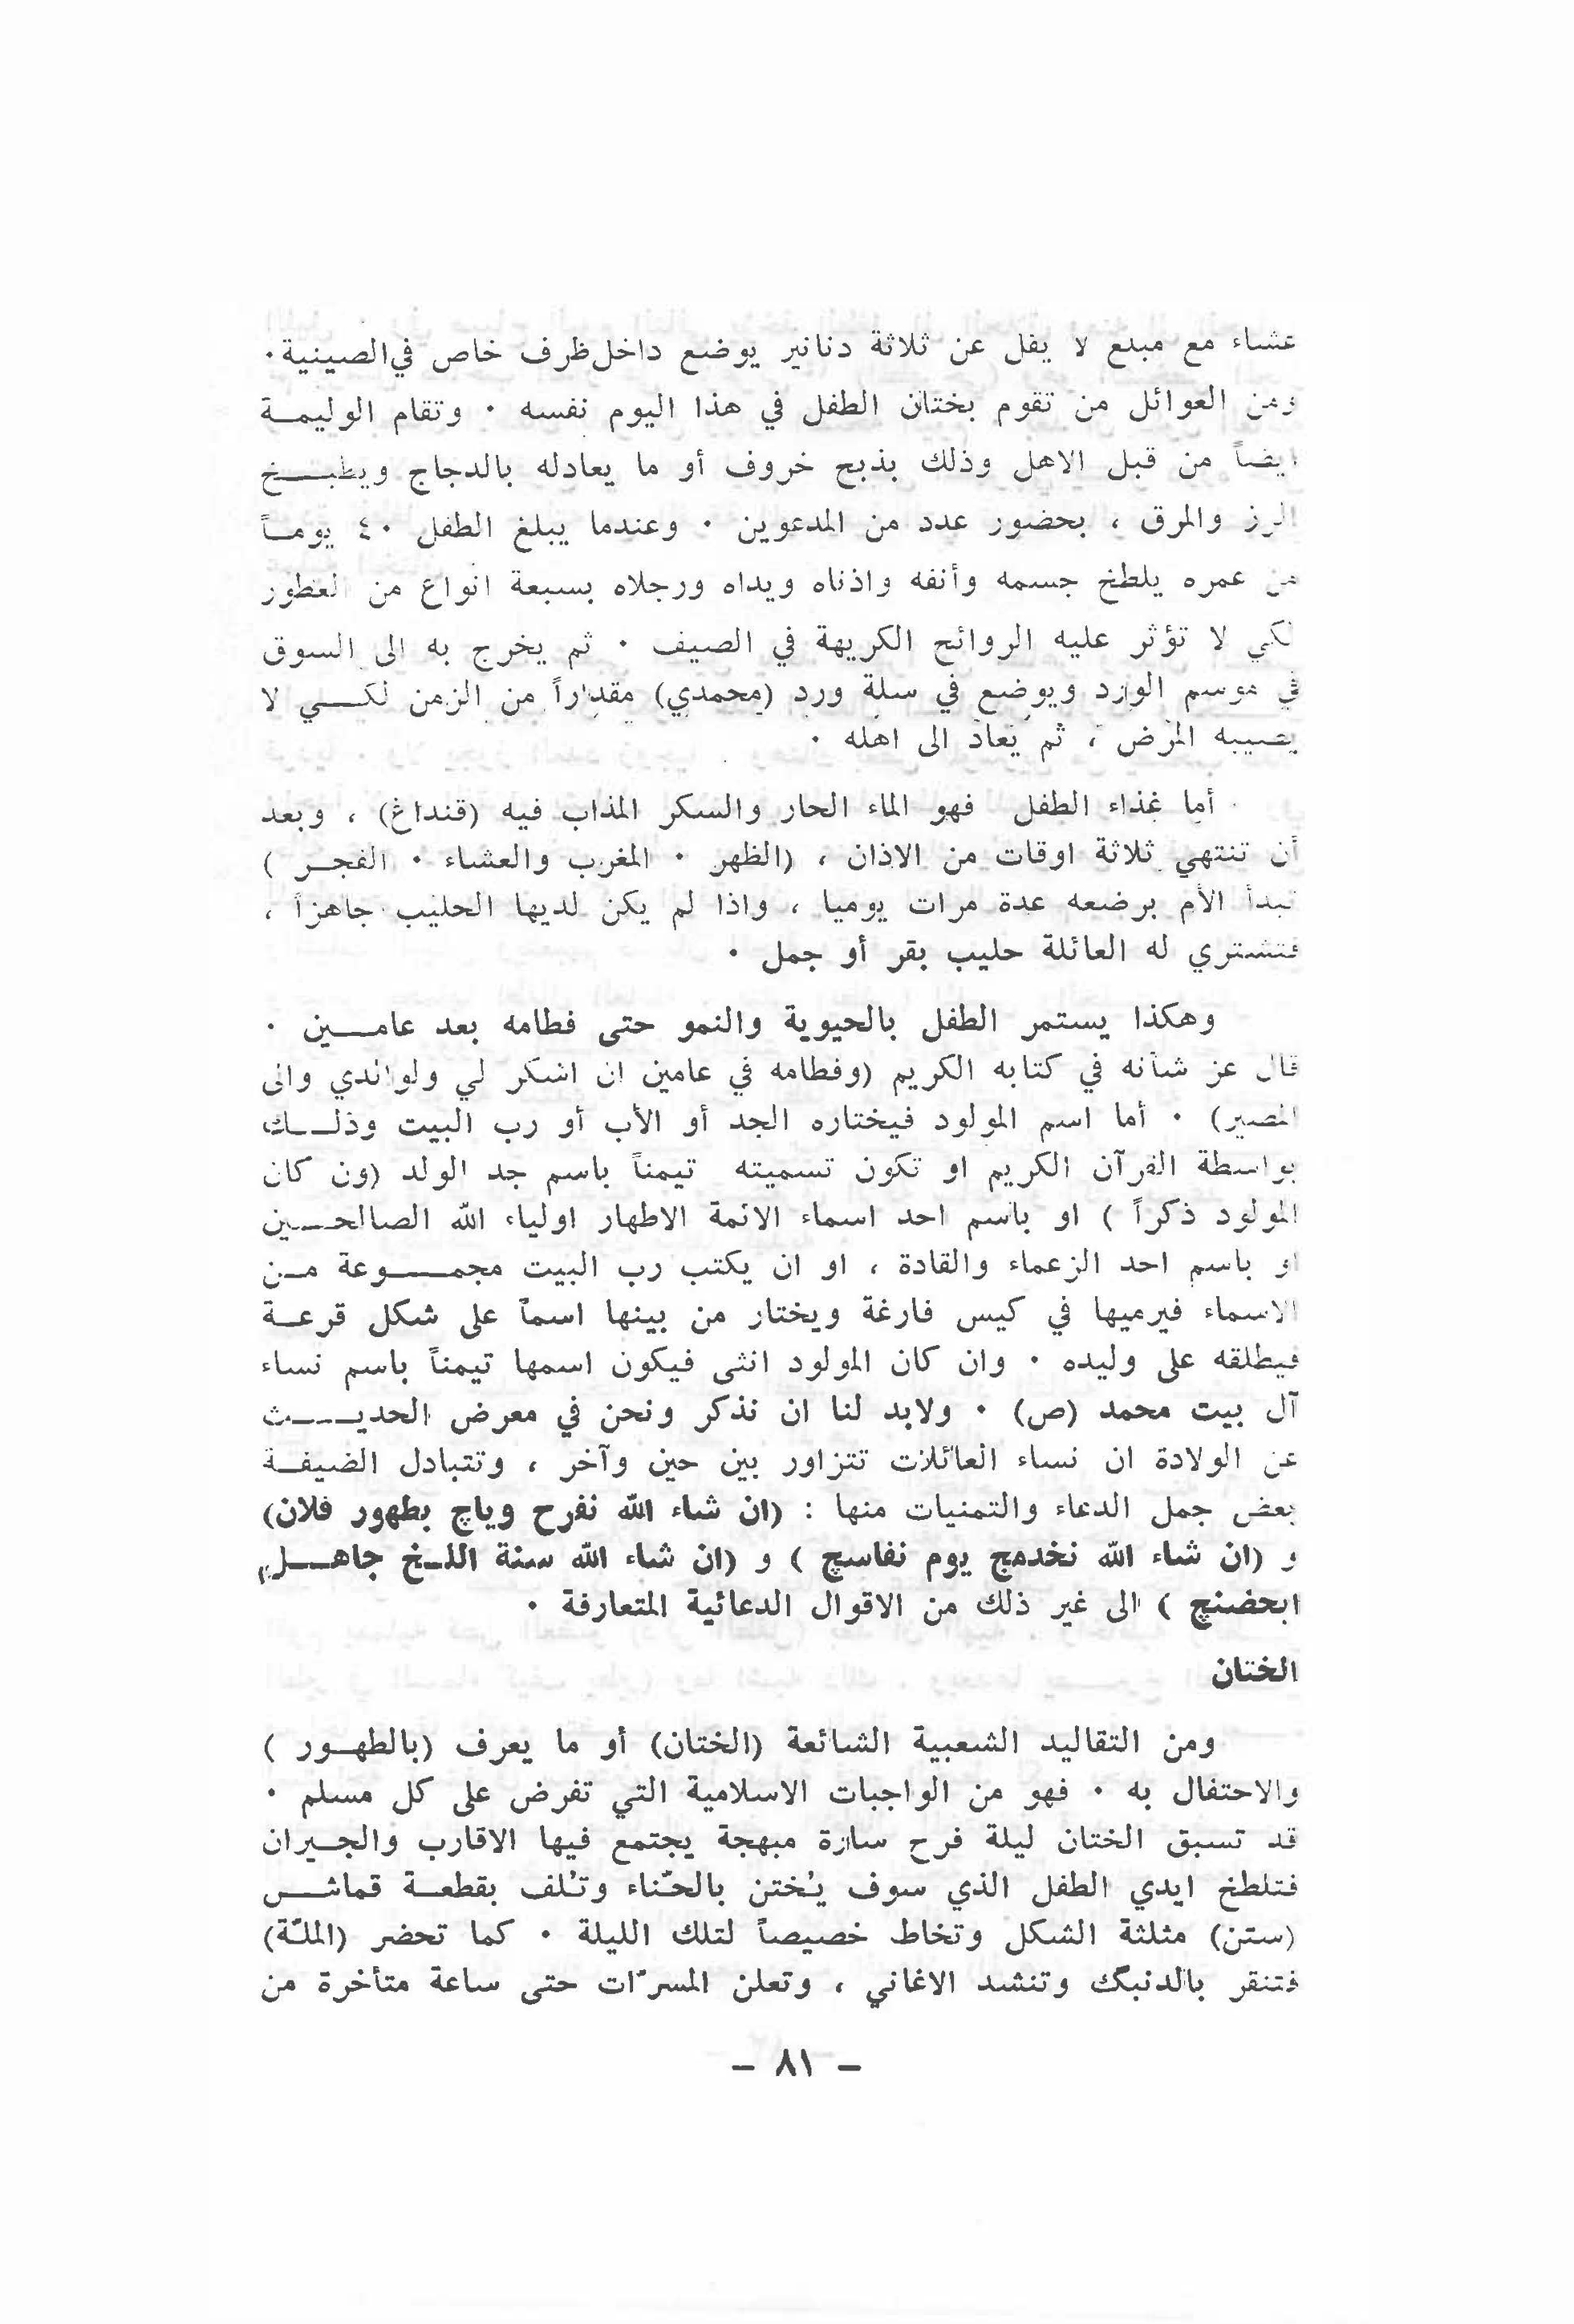 عشاء مع مبلغ لا يقل عن ثلاثة دنانير يوضع داخل ظرف خاص في الصينية ٠
ومن العوائل من تقوم بختان الطفل في هذا اليوم نفسه ٠ وتقام الوليمـة
ايضاً من قبل الاهل وذلك بذبح خروف أو ما يعادله بالدجاج ويطبـــخ
الرز والمرق ، بحضور عدد من المدعوين ٠ وعندما يبلغ الطفل ٤٠ يومـاً
من عمره يلطخ جسمه وأنفه واذناه ويداه ورجلاه بسبعة انواع من العطور
لكي لا تؤثر عليه الروائح الكريهة في الصيف ٠ ثم يخرج به الى السوق
في موسم الورد ويوضع في سلة ورد (محمدي) مقداراً من الزمن لكـــي لا
يصيبه المرض ، ثم يعاد الى اهله ٠
أما غذاء الطفل فهو الماء الحار والسكر المذاب فيه (قنداغ) ، وبعد
أن تنتهي ثلاثة اوقات من الاذان ، (الظهر ٠ المغرب والعشاء ٠ الفجـر )
تبدأ الأم برضعه عدة مرات يوميا ، واذا لم يكن لديها الحليب جاهزاً ،
فتشتري له العائلة حليب بقر أو جمل ٠
وهكذا يستمر الطفل بالحيوية والنمو حتى فطامه بعد عامـــين ٠
قال عز شأنه في كتابه الكريم (وفطامه في عامين ان اشكر لي ولوالدي والى
المصير) ٠ أما اسم المولود فيختاره الجد أو الأب أو رب البيت وذلــك
بواسطة القرآن الكريم او تكون تسميته تيمناً باسم جد الولد (ون كان
المولود ذكراً ) او باسم احد اسماء الائمة الاطهار اولياء الله الصالحـــين
او باسم احد الزعماء والقادة ، او ان يكتب رب البيت مجمــــوعة مـن
الاسماء فيرميها في كيس فارغة ويختار من بينها اسماً على شكل قرعـة
فيطلقه على وليده ٠ وان كان المولود انثى فيكون اسمها تيمناً باسم نساء
آل بيت محمد (ص) ٠ ولابد لنا ان نذكر ونحن في معرض الحديـــث
عن الولادة ان نساء العائلات تتزاور بين حين وآخر ، وتتبادل الضيفـة
بعض جمل الدعاء والتمنيات منها : (ان شاء الله نفرح وياچ بطهور فلان)
و (ان شاء الله نخدمج يوم نفاسچ ) و (ان شاء الله سنة اللـخ جاهـــل
ابحضنچ ) الى غير ذلك من الاقوال الدعائية المتعارفة ٠
الختان
ومن التقاليد الشعبية الشائعة (الختان) أو ما يعرف (بالطهـور )
والاحتفال به ٠ فهو من الواجبات الاسلامية التي تفرض على كل مسلم ٠
قد تسبق الختان ليلة فرح سارة مبهجة يجتمع فيها الاقارب والجـيران
فتلطخ ايدي الطفل الذي سوف يُختن بالحنّاء وتُلف بقطعـة قماشـــس
(ستن) مثلثة الشكل وتخاط خصيصاً لتلك الليلة ٠ كما تحضر (الملّة)
فتنقر بالدنبگ وتنشد الاغاني ، وتعلن المسرّات حتى ساعة متأخرة من
– ٨١ –